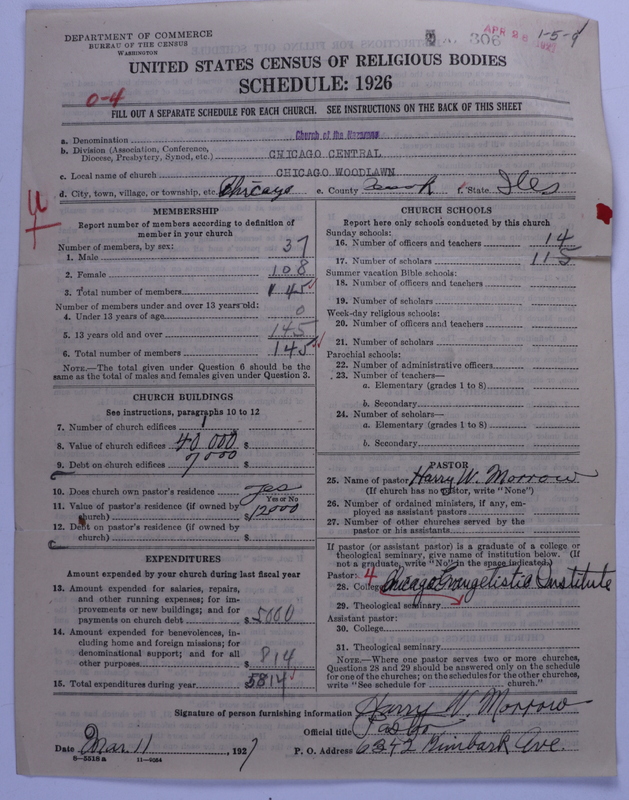 DEPARTMENT OF COMMERCE
BUREAU OF THE CENSUS
WASHINGTON
306
APR 26 1927
1-5-9
UNITED STATES CENSUS OF RELIGIOUS BODIES
SCHEDULE: 1926
0-4
FILL OUT A SEPARATE SCHEDULE FOR EACH CHURCH. SEE INSTRUCTIONS ON THE BACK OF THIS SHEET
a. Denomination Church of the Nazarene
b. Division (Association, Conference, Diocese, Presbytery, Synod, etc.) CHICAGO CENTRAL
c. Local name of church CHICAGO WOODLAWN
d. City, town, village, or township, etc. Chicago e. County Cook f. State Ills
MEMBERSHIP
Report number of members according to definition of
member in your church
Number of members, by sex:
1. Male 37
2. Female 108
3. Total number of members 145
Number of members under and over 13 years old:
4. Under 13 years of age 0
5. 13 years old and over 145
6. Total number of members 145
NOTE.—The total given under Question 6 should be
same as the total of males and females given under Question 3.
CHURCH BUILDINGS
See instructions, paragraphs 10 to 12
7. Number of church edifices 1
8. Value of church edifices 40 000 $
9. Debt on church edifices 7000 $
10. Does church own pastor's residence yes
Yes or No
11. Value of pastor's residence (if owned by
church) $ 12000
12. Debt on pastor's residence (if owned by
church) $
EXPENDITURES
Amount expended by your church during last fiscal year
13. Amount expended for salaries, repairs,
and other running expenses; for im-
provements or new buildings; and for
payments on church debt $ 5000
14. Amount expended for benevolences, in-
cluding home and foreign missions; for
denominational support; and for all
other purposes $ 814
15. Total expenditures during year $ 5814
CHURCH SCHOOLS
Report here only schools conducted by this church
Sunday schools:
16. Number of officers and teachers 14
17. Number of scholars 115
Summer vacation Bible schools:
18. Number of officers and teachers
19. Number of scholars
Week-day religious schools:
20. Number of officers and teachers
21. Number of scholars
Parochial schools:
22. Number of administrative officers
23. Number of teachers—
a. Elementary (grades 1 to 8)
b. Secondary
24. Number of scholars—
a. Elementary (grades 1 to 8)
b. Secondary
PASTOR
25. Name of pastor Harry W. Morrow
(If church has no pastor, write "None")
26. Number of ordained ministers, if any, em-
ployed as assistant pastors
27. Number of other churches served by the
pastor or his assistants
If pastor (or assistant pastor) is a graduate of a college or
theological seminary, give name of institution below. (If
not a graduate, write "No" in the space indicated.)
Pastor: 4
28. College Chicago Evangelistic Institute
29. Theological seminary
Assistant pastor:
30. College
31. Theological seminary
NOTE.—Where one pastor serves two or more churches,
Questions 28 and 29 should be answered only on the schedule
for one of the churches; on the schedules for the other churches,
write "See schedule for church."
Signature of person furnishing information Harry W. Morrow
Official title Pastor
Date Mar. 11 1927 P. O. Address 6342 Kimbark Ave.
8-5518a 11-9054